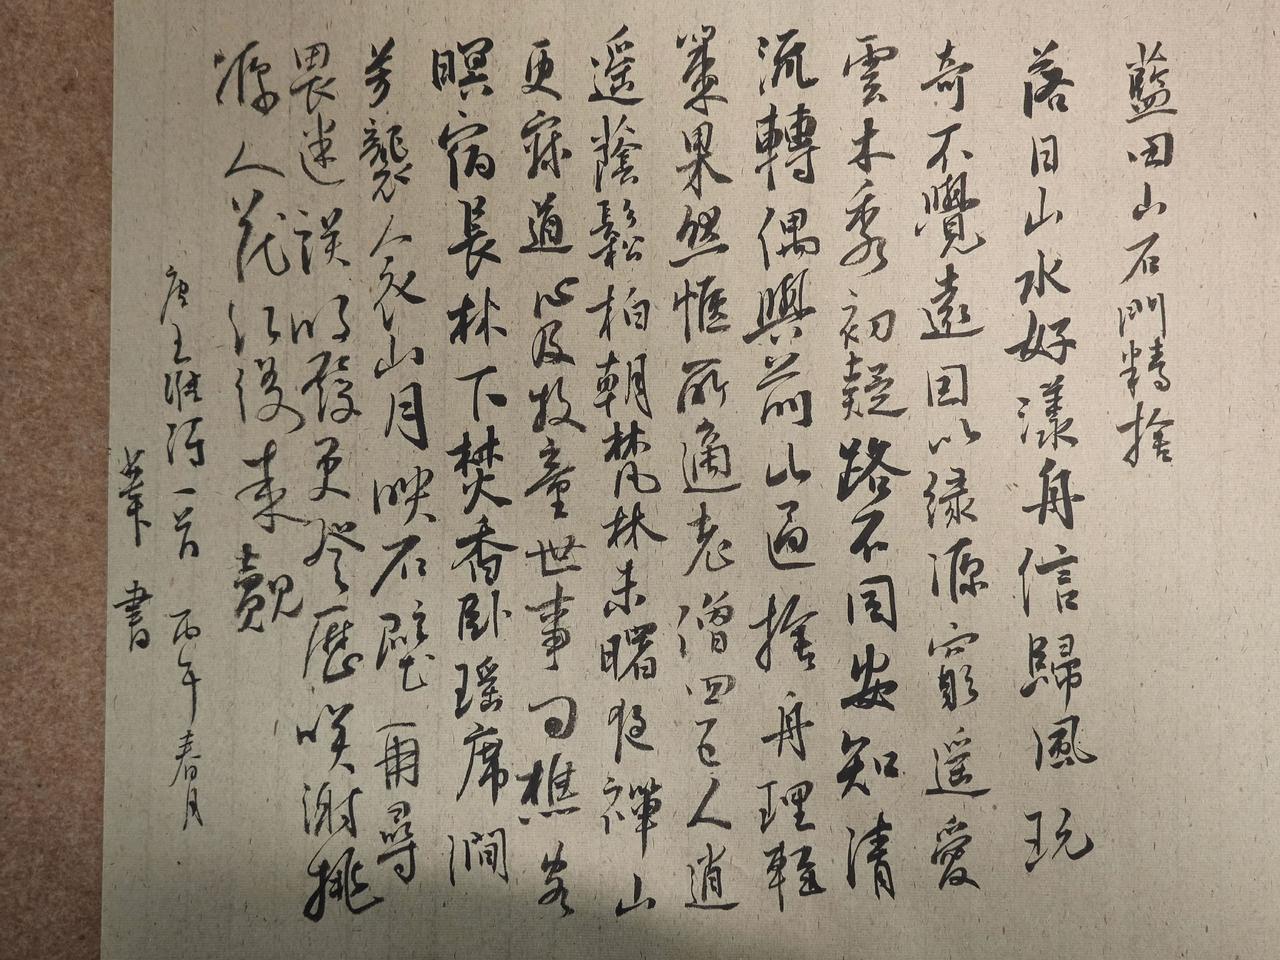 藍田山石門精捨
落日山水好漾舟信歸風玩
奇不覺遠因以緣源窮遥愛
雲木秀初疑路不同安知清
流轉偶與前山通捨舟理輕
策果然愜所適老僧四五人逍
遥蔭鬆柏朝梵林未曙夜禪山
更寂道心及牧童世事問樵客
暝宿長林下焚香卧瑶席澗
芳襲人衣山月映石壁再尋
畏迷誤明發更登歷笑謝桃
源人花紅復來覿
唐王維詩一首 丙午春月
書